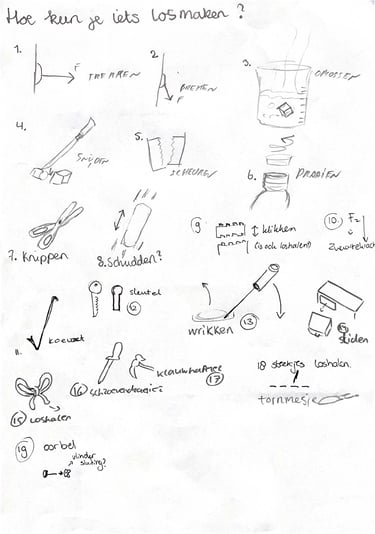 Hoe kun je iets losmaken?
1.
F
TREKKEN
2
F
BREKEN
3.
OPLOSSEN
4.
SNIJDEN
5.
SCHEUREN
6.
DRAAIEN
7. Knippen
8. Schudden?
9 klikken
(is ook loshalen!)
10. Fz
Zwaartekracht
11.
koevoet
sleutel
12
wrikken 13
sliden
15 Loshalen
16 Schroevendraaier
klauwhamer
17
18 steekjes loshalen.
tornmesje
19 oorbel
vlinder
sluiting?